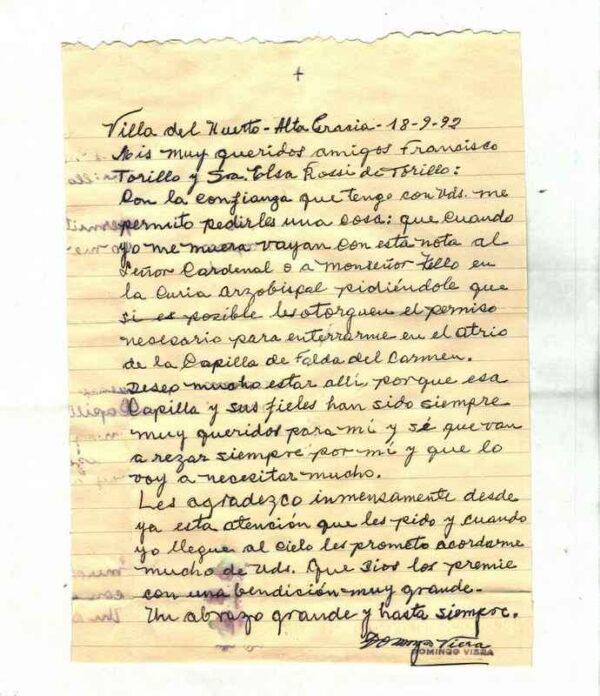 +
Villa del Huerto - Alta Gracia - 18-9-92
Mis muy queridos amigos Francisco
Torillo y Sra. Elsa Rossi de Torillo:
Con la confianza que tengo con Uds. me
permito pedirles una cosa: que cuando
yo me muera vayan con esta nota al
Señor Cardenal o a Monseñor Tello en
la Curia Arzobispal pidiéndole que
si es posible les otorguen el permiso
necesario para enterrarme en el atrio
de la Capilla de Falda del Carmen.
Deseo mucho estar allí porque esa
Capilla y sus fieles han sido siempre
muy queridos para mí y sé que van
a rezar siempre por mí y que lo
voy a necesitar mucho.
Les agradezco inmensamente desde
ya esta atención que les pido y cuando
yo llegue al cielo les prometo acordarme
mucho de Uds. Que Dios los premie
con una bendición muy grande.
Un abrazo grande y hasta siempre.
Domingo Viera
DOMINGO VIERA